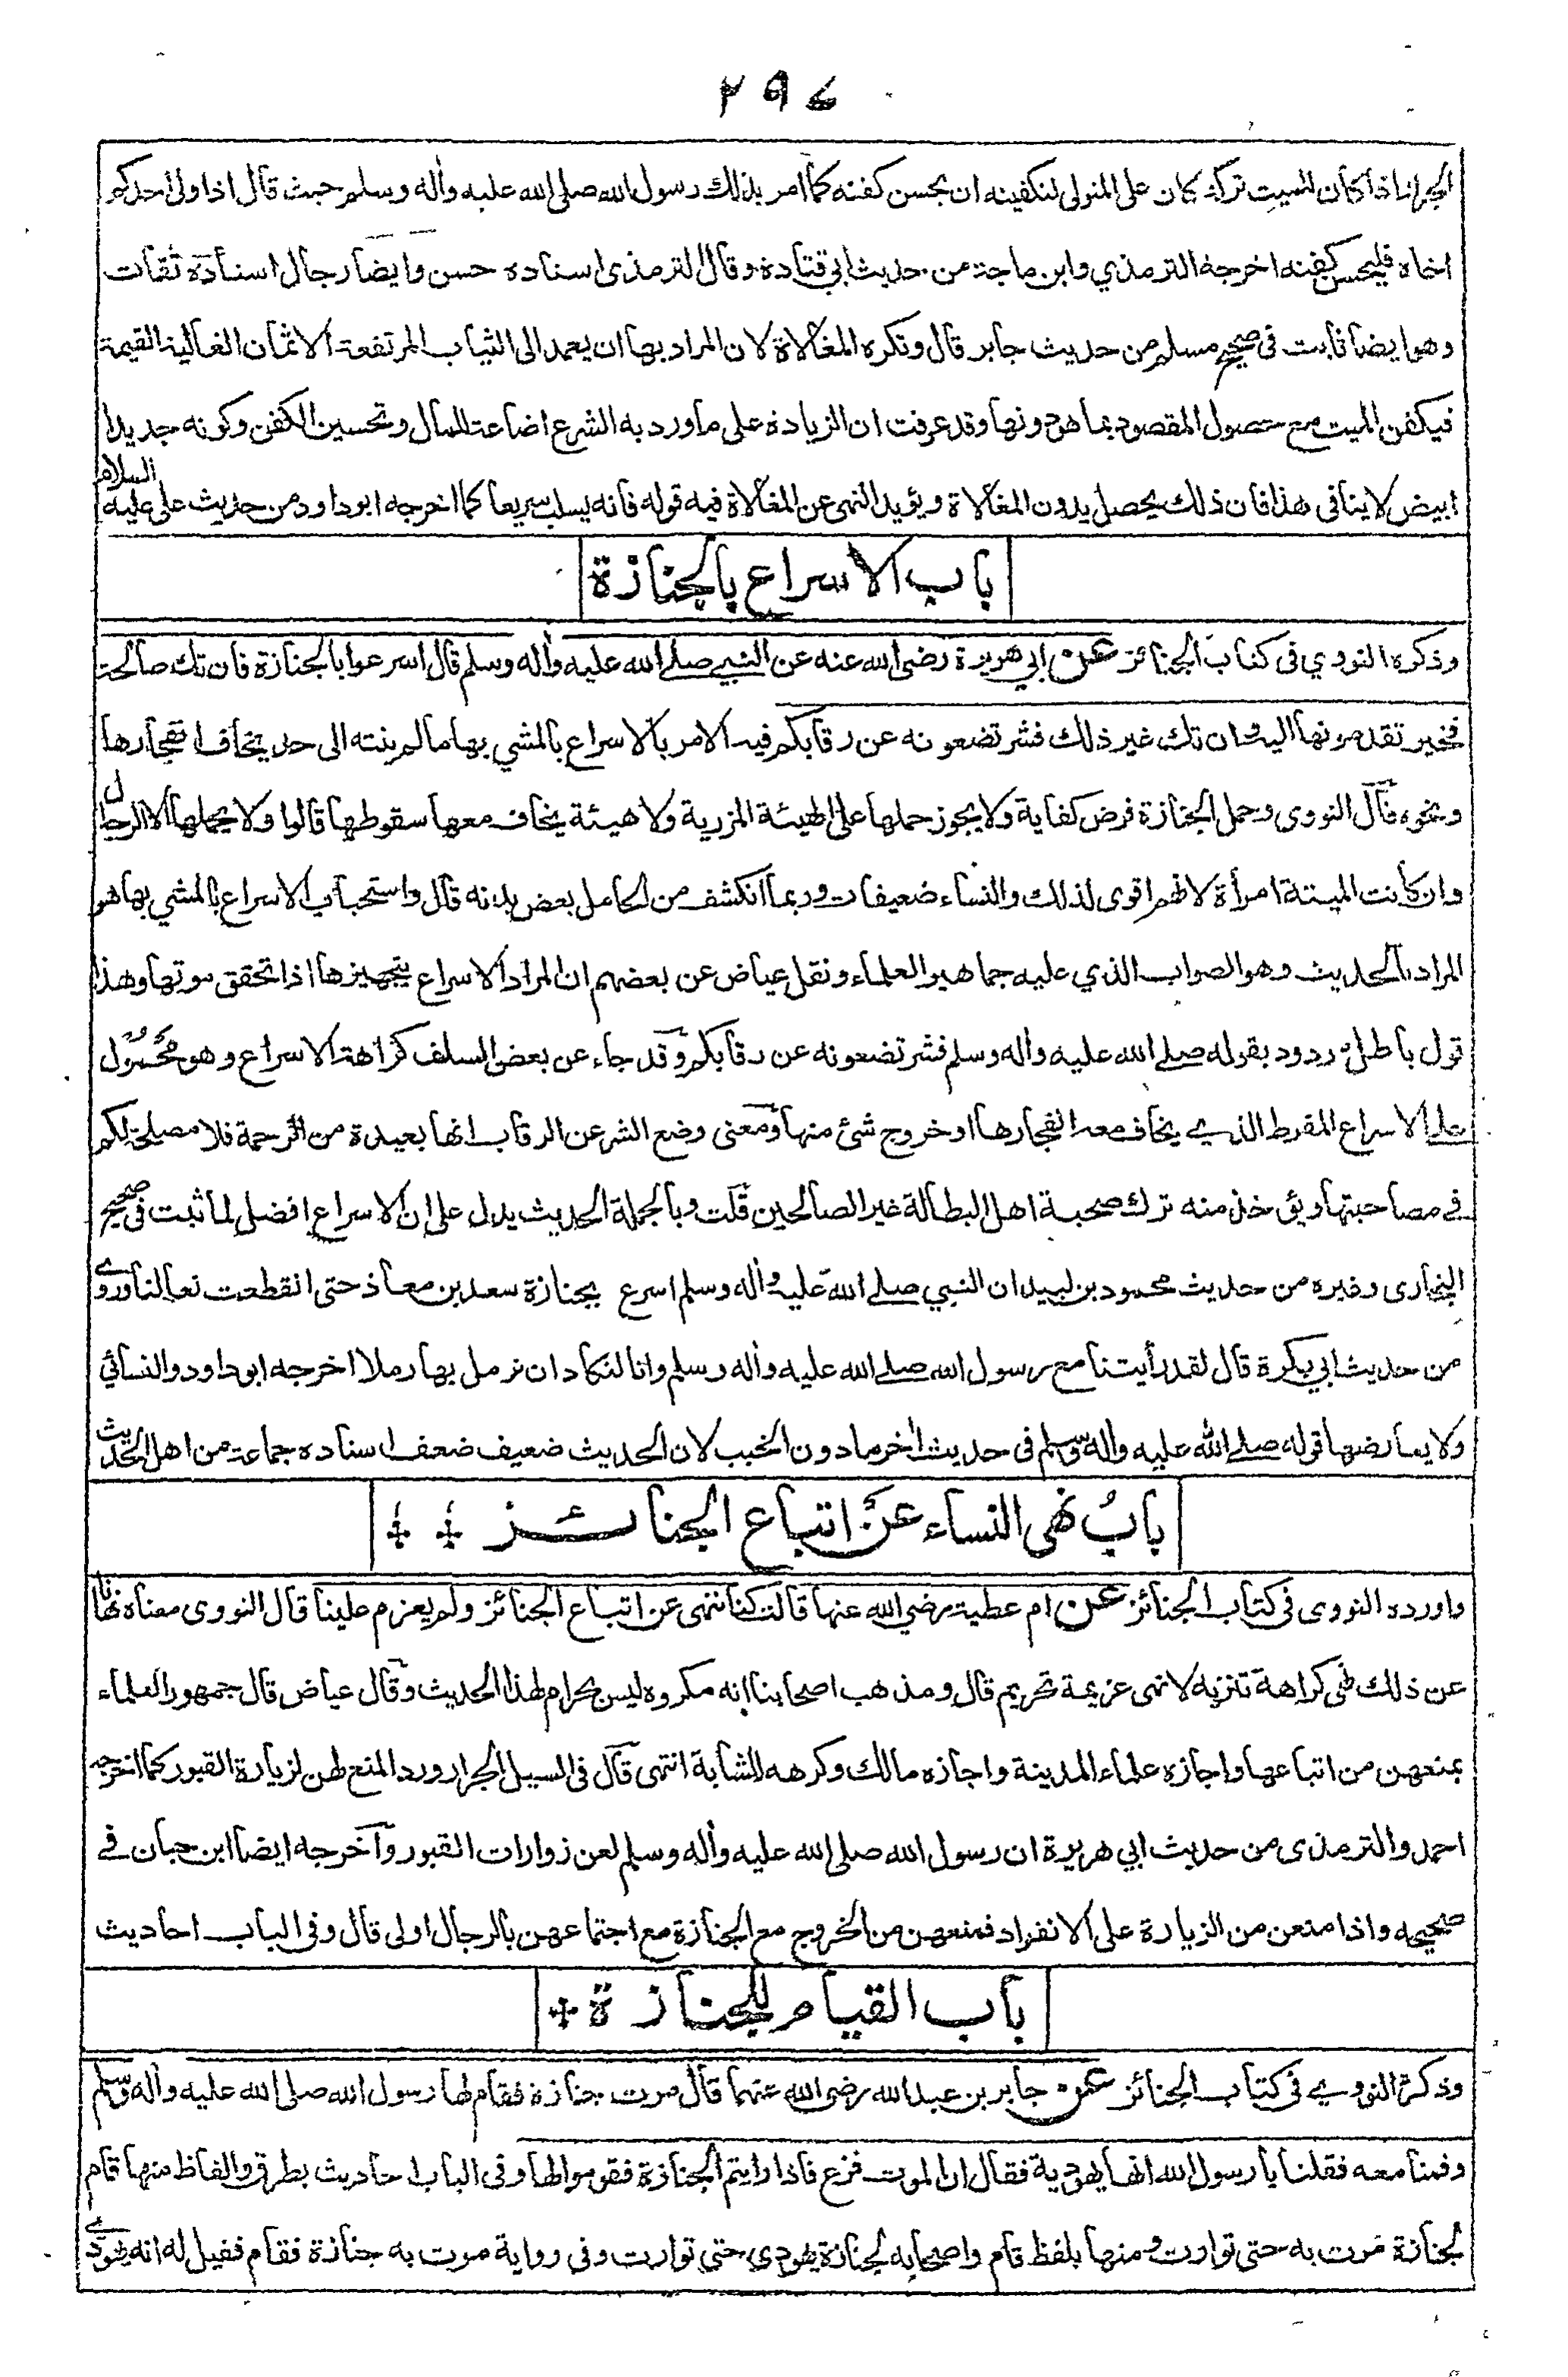 ٢٩٤
الجرار اذا كان للميت تركة كان على المتولى لتكفينه ان يحسن كفنه كما امر بذلك رسول الله صلى الله عليه واٰله وسلم حيث قال اذا ولى احدكم
اخاه فليحسن كفنه اخرجه الترمذي وابن ماجة من حديث ابي قتادة وقال الترمذى اسناده حسن وايضا رجال اسناده ثقات
وهو ايضا ثابت فى صحيح مسلم من حديث جابر قال وتكره المغالاة لان المراد بها ان يعمد الى الثياب المرتفعة الاثمان الغالية القيمة
فيكفن الميت مع حصول المقصود بما هو دونها وقد عرفت ان الزيادة على ما ورد به الشرع اضاعة للمال وتحسين الكفن وكونه جديدا
ابيض لا ينافى هذا فان ذلك يحصل بدون المغالاة ويؤيد النهى عن المغالاة فيه قوله فانه يسلب سريعا كما اخرجه ابوداود من حديث على عليه السلام
باب الاسراع بالجنازة
وذكره النووي فى كتاب الجنائز عن ابي هريرة رضى الله عنه عن النبي صلى الله عليه واٰله وسلم قال اسرعوا بالجنازة فان تك صالحة
فخير تقدمونها اليه وان تك غير ذلك فشر تضعونه عن رقابكم فيه الامر بالاسراع بالمشي بها ما لم ينته الى حد يخاف انفجارها
ونحوه قال النووى وحمل الجنازة فرض كفاية ولا يجوز حملها على الهيئة المزرية ولا هيئة يخاف معها سقوطها قالوا ولا يحملها الا الرجال
وان كانت الميتة امرأة لانهم اقوى لذلك والنساء ضعيفات وربما انكشف من الحامل بعض بدنه قال واستحباب الاسراع بالمشي بها هو
المراد بالحديث وهو الصواب الذي عليه جماهير العلماء ونقل عياض عن بعضهم ان المراد الاسراع بتجهيزها اذا تحقق موتها وهذا
قول باطل مردود بقوله صلى الله عليه واٰله وسلم فشر تضعونه عن رقابكم وقد جاء عن بعض السلف كراهة الاسراع وهو محمول
على الاسراع المفرط الذي يخاف معه انفجارها او خروج شئ منها ومعنى وضع الشر عن الرقاب انها بعيدة من الرحمة فلا مصلحة لكم
في مصاحبتها ويؤخذ منه ترك صحبة اهل البطالة غير الصالحين قلت وبالجملة الحديث يدل على ان الاسراع افضل لما ثبت فى صحيح
البخارى وغيره من حديث محمود بن لبيد ان النبي صلى الله عليه واٰله وسلم اسرع بجنازة سعد بن معاذ حتى انقطعت نعالنا وروي
من حديث ابي بكرة قال لقد رأيتنا مع رسول الله صلى الله عليه واٰله وسلم وانا لنكاد ان نرمل بها رملا اخرجه ابوداود والنسائي
ولا يعارضها قوله صلى الله عليه واله وسلم فى حديث اٰخر ما دون الخبب لان الحديث ضعيف ضعف اسناده جماعة من اهل الحديث
باب نهى النساء عن اتباع الجنائز
واورده النووى فى كتاب الجنائز عن ام عطية رضي الله عنها قالت كنا ننهى عن اتباع الجنائز ولم يعزم علينا قال النووى معناه نهانا
عن ذلك نهى كراهة تنزيه لا نهى عزيمة تحريم قال ومذهب اصحابنا انه مكروه ليس بحرام لهذا الحديث وقال عياض قال جمهور العلماء
بمنعهن من اتباعها واجازه علماء المدينة واجازه مالك وكرهه للشابة انتهى قال فى السيل الجرار ورد المنع لهن لزيارة القبور كما اخرجه
احمد والترمذى من حديث ابي هريرة ان رسول الله صلى الله عليه واٰله وسلم لعن زوارات القبور واخرجه ايضا ابن حبان في
صحيحه واذا منعن من الزيارة على الانفراد فمنعهن من الخروج مع الجنازة مع اجتماعهن بالرجال اولى قال وفى الباب احاديث
باب القيام للجنازة
وذكره النووي فى كتاب الجنائز عن جابر بن عبد الله رضى الله عنهما قال مرت جنازة فقام لها رسول الله صلى الله عليه واٰله وسلم
وقمنا معه فقلنا يا رسول الله انها يهودية فقال ان الموت فزع فاذا رايتم الجنازة فقوموا لها وفى الباب احاديث بطرق والفاظ منها قام
لجنازة مرت به حتى توارت ومنها بلفظ قام واصحابه لجنازة يهودى حتى توارت وفى رواية مرت به جنازة فقام فقيل له انه يهودي